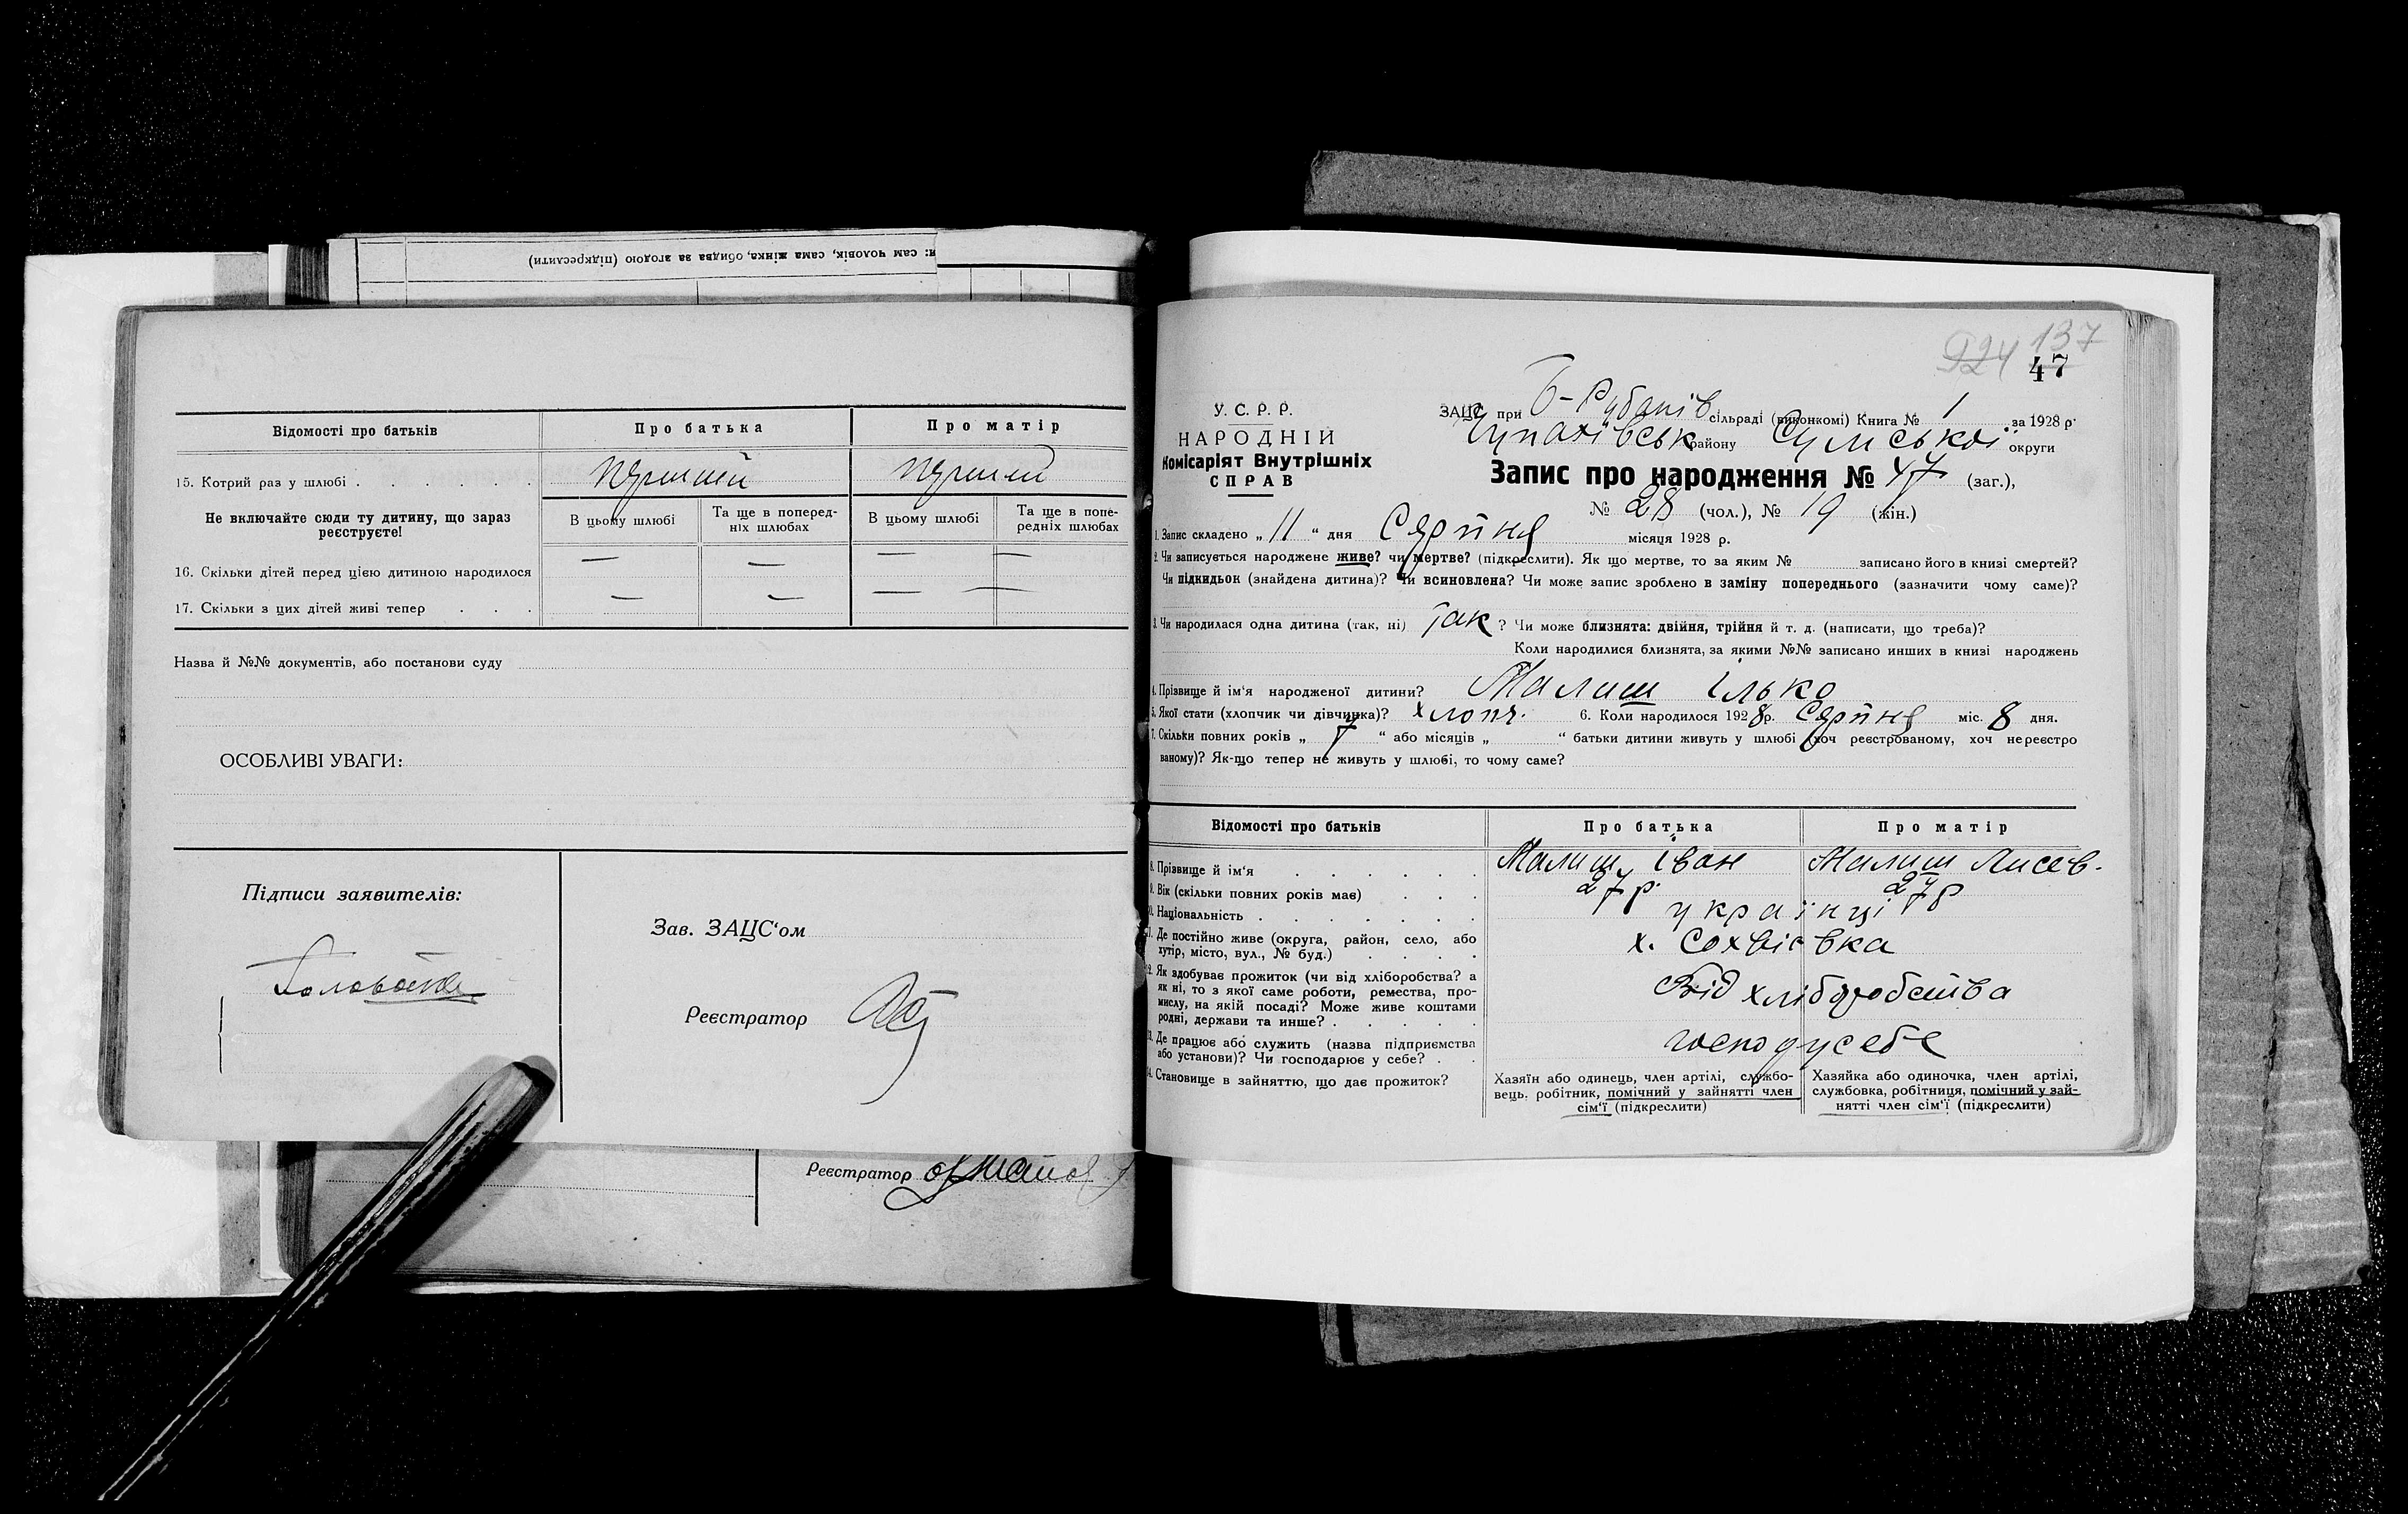 и: сам чоловік, сама жінка, обидва за згодою (підкреслити)
Відомості про батьків
Про батька
Про матір
15. Котрий раз у шлюбі . . . . . .
перший
перший
Не включайте сюди ту дитину, що зараз реєструєте!
В цьому шлюбі
Та ще в попередніх шлюбах
В цьому шлюбі
Та ще в попередніх шлюбах
16. Скільки дітей перед цією дитиною народилося
— — — —
17. Скільки з цих дітей живі тепер . . .
— — — —
Назва й №№ документів, або постанови суду
ОСОБЛИВІ УВАГИ:
Підписи заявителів:
Зав. ЗАЦС‘ом
Реєстратор
Реєстратор
924 137
47
У. С. Р. Р.
НАРОДНІЙ
Комісаріят Внутрішніх
СПРАВ
ЗАЦС при Б-Рубанів сільраді (виконкомі) Книга № 1 за 1928 р.
Чупахівськ району Сумської округи
Запис про народження № 47 (заг.),
№ 28 (чол.), № 19 (жін.)
1. Запис складено „ 11 “ дня Серпня місяця 1928 р.
2. Чи записується народжене живе? чи мертве? (підкреслити). Як що мертве, то за яким № записано його в книзі смертей?
Чи підкидьок (знайдена дитина)? Чи всиновлена? Чи може запис зроблено в заміну попереднього (зазначити чому саме)?
3. Чи народилася одна дитина (так, ні) Так ? Чи може близнята: двійня, трійня й т. д. (написати, що треба)?
Коли народилися близнята, за якими №№ записано инших в книзі народжень
4. Прізвище й ім‘я народженої дитини? Малиш Ілько
5. Якої стати (хлопчик чи дівчинка)? хлопч. 6. Коли народилося 1928 р. Серпня міс. 8 дня.
7. Скільки повних років „ 7 “ або місяців „ “ батьки дитини живуть у шлюбі (хоч реєстрованому, хоч нереєстро
ваному)? Як-що тепер не живуть у шлюбі, то чому саме?
Відомості про батьків
Про батька
Про матір
8. Прізвище й ім‘я . . . . . .
Малиш Іван
Малиш Лисав.
9. Вік (скільки повних років має) . . .
27 р.
27 р
10. Національність . . . . . . .
українці
11. Де постійно живе (округа, район, село, або
хутір, місто, вул., № буд.) . . . .
х. Сохвіївка
12. Як здобуває прожиток (чи від хліборобства? а
як ні, то з якої саме роботи, ремества, про-
мислу, на якій посаді? Може живе коштами
родні, держави та инше? . . . . .
Від хліборобства
13. Де працює або служить (назва підприємства
або установи)? Чи господарює у себе? . .
господ у себе
14. Становище в зайняттю, що дає прожиток?
Хазяїн або одинець, член артілі, службо-
вець, робітник, помічний у занятті член
сім‘ї (підкреслити)
Хазяйка або одиночка, член артілі,
службовка, робітниця, помічний у зай-
нятті член сім‘ї (підкреслити)